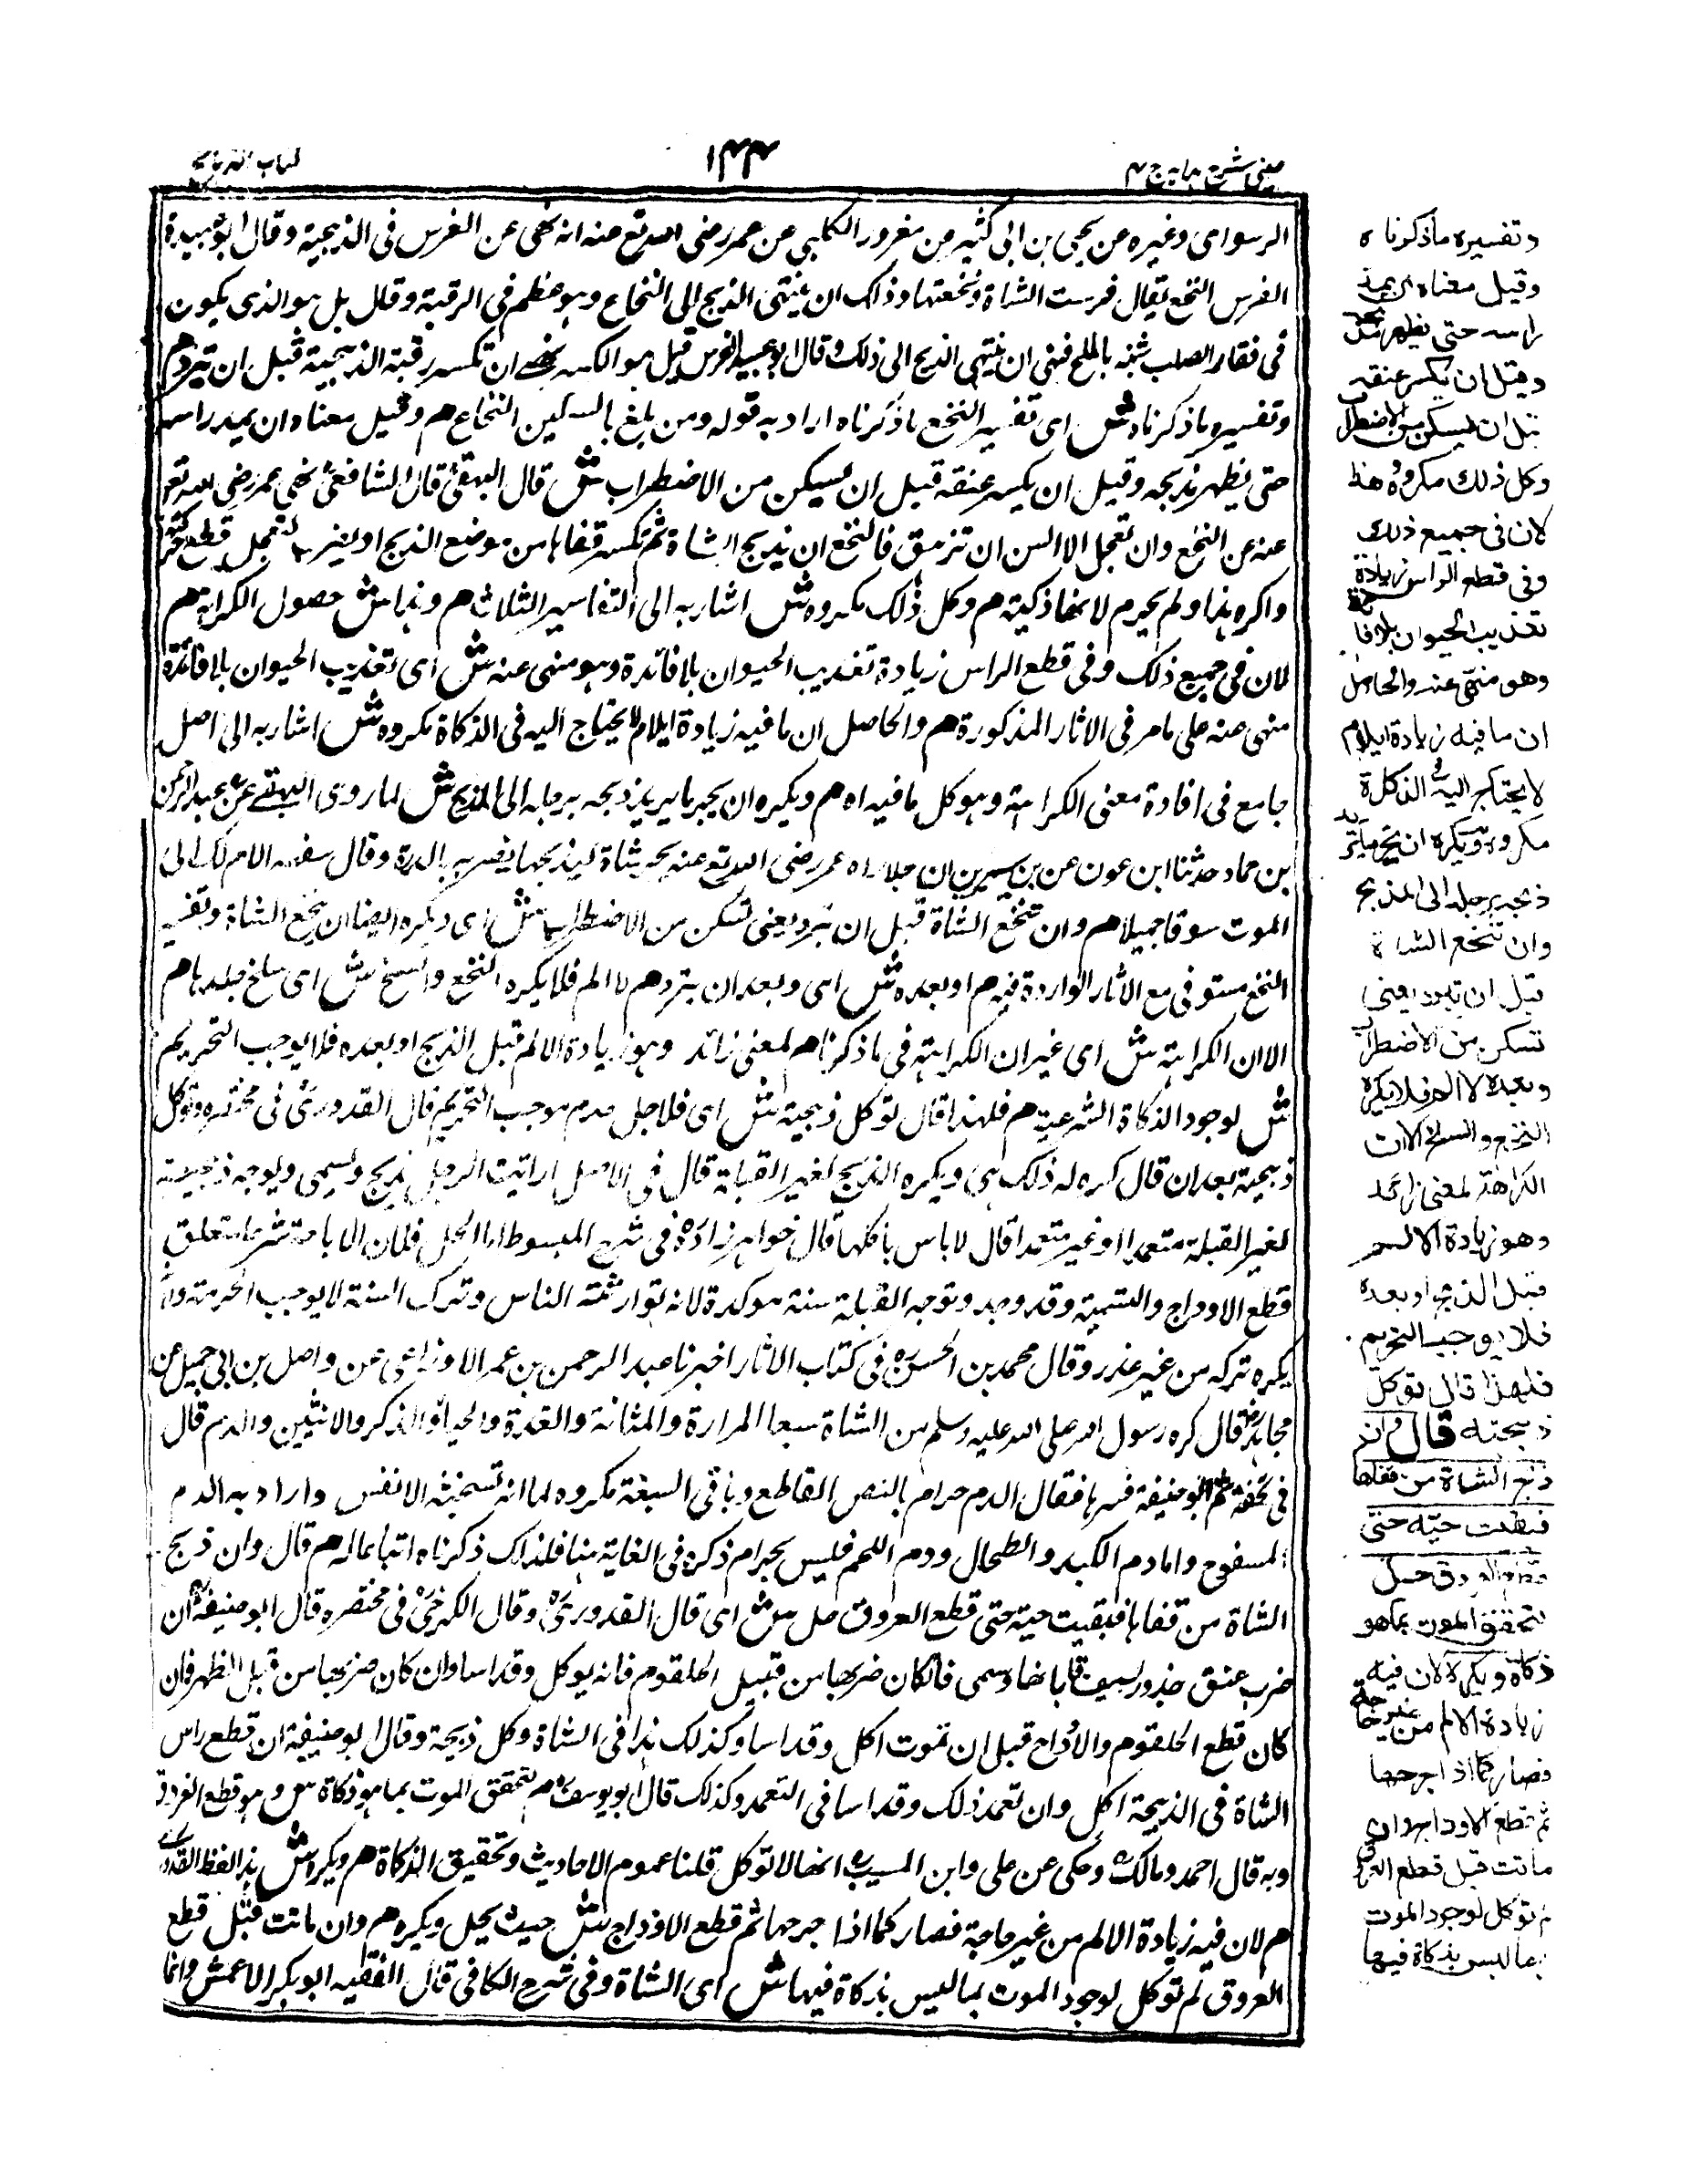 عينی شرح هدايه ج ٤
١٤٤
كتاب الذبائح
وغيره عن يحيى بن ابی كثير عن معرور الكلبی عن عمر رضی الله تع عنه انه نهى عن الفرس فی الذبيحة وقال ابو عبيدة
الفرس النخع يقال فرست الشاة ونخعتها وذلك ان ينتهی الذبح الى النخاع وهو عظم فی الرقبة وقال بل هو الذی يكون
فی فقار الصلب شبه بالمخ فنهى ان ينتهی الذبح الى ذلك وقال ابو عبيد الفرس قيل هو الكسر نهى ان تكسر رقبة الذبيحة قبل ان تبرد هم
وتفسيره ما ذكرناه ش ای تفسير النخع ما ذكرناه اراد به قوله ومن بلغ بالسكين النخاع هم وقيل معناه ان يمد راسه
حتى يظهر مذبحه وقيل ان يكسر عنقه قبل ان يسكن من الاضطراب ش قال البيهقی قال الشافعی نهى عمر رضی الله تع
عنه عن النخع وان تعجل الانفس ان تزهق فالنخع ان يذبح الشاة ثم تكسر قفاها من موضع الذبح او لتعجل قطع
واكره هذا ولم يحرم لانها ذكية هم وكل ذلك مكروه ش اشار به الى التفاسير الثلاث هم وهذا ش حصول الكراهة هم
لان فی جميع ذلك وفی قطع الراس زيادة تعذيب الحيوان بلا فائدة وهو منهی عنه ش ای تعذيب الحيوان بلا فائدة
منهی عنه على ما مر فی الاثار المذكورة هم والحاصل ان ما فيه زيادة ايلام لا يحتاج اليه فی الذكاة مكروه ش اشار به الى اصل
جامع فی افادة معنى الكراهة وهو كل ما فيه اه هم ويكره ان يجر ما يريد ذبحه برجله الى المذبح ش لما روى البيهقی عن عبد الرحمن
بن حماد حدثنا ابن عون عن بن سيرين ان عمر رضی الله تع عنه يجر شاة ليذبحها فضربه بالدرة وقال سقها لا ام لك الى
الموت سوقا جميلا هم وان تنخع الشاة قبل ان تبرد يعنی تسكن من الاضطراب ش ای ويكره ايضا ان ينخع الشاة وتفسير
النخع مستوفی مع الاثار الواردة فيه هم او بعده ش ای وبعد ان تبرد هم لا الم فلا يكره النخع والسلخ ش ای سلخ جلدها هم
الا ان الكراهة ش ای غير ان الكراهة فی ما ذكرنا هم لمعنى زائد وهو زيادة الالم قبل الذبح او بعده فلا يوجب التحريم
ش لوجود الذكاة الشرعية هم فلهذا قال توكل ذبيحة ش ای فلاجل عدم موجب التحريم قال القدوری فی مختصره وتوكل
ذبيحة بعد ان قال كره له ذلك ويكره الذبح لغير القبلة قال فی الاصل ارايت الرجل يذبح ويسمی ويوجه ذبيحته
لغير القبلة متعمدا او غير متعمد قال لا باس باكلها قال خواهر زاده فی شرح المبسوط اما الحل فلان الاباحة شرعا متعلق
قطع الاوداج والتسمية وقد وجد وتوجه القبلة سنة موكدة لانه توارثته الناس وترك السنة لا يوجب الحرمة
يكره تركه من غير عذر وقال محمد بن الحسن فی كتاب الاثار اخبرنا عبد الرحمن بن عمر الاوزاعی عن واصل بن ابی جميل عن
مجاهد قال كره رسول الله صلى الله عليه وسلم من الشاة سبعا المرارة والمثانة والغدة والحياء والذكر والانثيين والدم قال
فی تحفة ابو حنيفة فسرها فقال الدم حرام بالنص القاطع وباقی السبعة مكروه لما انه تستخبثه الانفس واراد به الدم
المسفوح واما دم الكبد والطحال ودم اللحم فليس بحرام ذكره فی الغاية هنا فلذلك ذكرناه اتباعا له هم قال وان ذبح
الشاة من قفاها فبقيت حية حتى قطع العروق حل ش ای قال القدوری وقال الكرخی فی مختصره قال ابو حنيفة ان
ضرب عنق جزور بسيف فابانها وسمى فان كان ضربها من قبل الحلقوم فانه يوكل وقد اسا وان كان ضربها من قبل الظهر فان
كان قطع الحلقوم والاوداج قبل ان تموت اكل وقد اسا وكذلك هذا فی الشاة وكل ذبيحة وقال ابو حنيفة ان قطع راس
الشاة فی الذبيحة اكل وان تعمد ذلك وقد اسا فی التعمد وكذلك قال ابو يوسف هم لتحقق الموت بما هو ذكاة ش وهو قطع العروق
وبه قال احمد ومالك وحكى عن على وابن المسيب انها لا توكل قلنا عموم الاحاديث وتحقيق الذكاة هم ويكره ش هذا لفظ القدوری
هم لان فيه زيادة الالم من غير حاجة فصار كما اذا جرحها ثم قطع الاوداج ش حيث يحل ويكره هم وان ماتت قبل قطع
العروق لم توكل لوجود الموت بما ليس بذكاة فيها ش ای الشاة وفی شرح الكافی قال الفقيه ابو بكر الاعمش وانما
وتفسيره ما ذكرناه
وقيل معناه ان يمد
راسه حتى يظهر مذبحه
وقيل ان يكسر عنقه
قبل ان يسكن من الاضطراب
وكل ذلك مكروه هذا
لان فی جميع ذلك
وفی قطع الراس زيادة
تعذيب الحيوان بلا فائدة
وهو منهی عنه والحاصل
ان ما فيه زيادة ايلام
لا يحتاج اليه فی الذكاة
مكروه ويكره ان يجر ما يريد
ذبحه برجله الى المذبح
وان تنخع الشاة
قبل ان تبرد يعنی
تسكن من الاضطراب
وبعده لا الم فلا يكره
النخع والسلخ الا ان
الكراهة لمعنى زائد
وهو زيادة الالم
قبل الذبح او بعده
فلا يوجب التحريم
فلهذا قال توكل
ذبيحته قال وان
ذبح الشاة من قفاها
فبقيت حية حتى
قطع العروق حل
لتحقق الموت بما هو
ذكاة ويكره لان فيه
زيادة الالم من غير حاجة
فصار كما اذا جرحها
ثم قطع الاوداج وان
ماتت قبل قطع العروق
لم توكل لوجود الموت
بما ليس بذكاة فيها